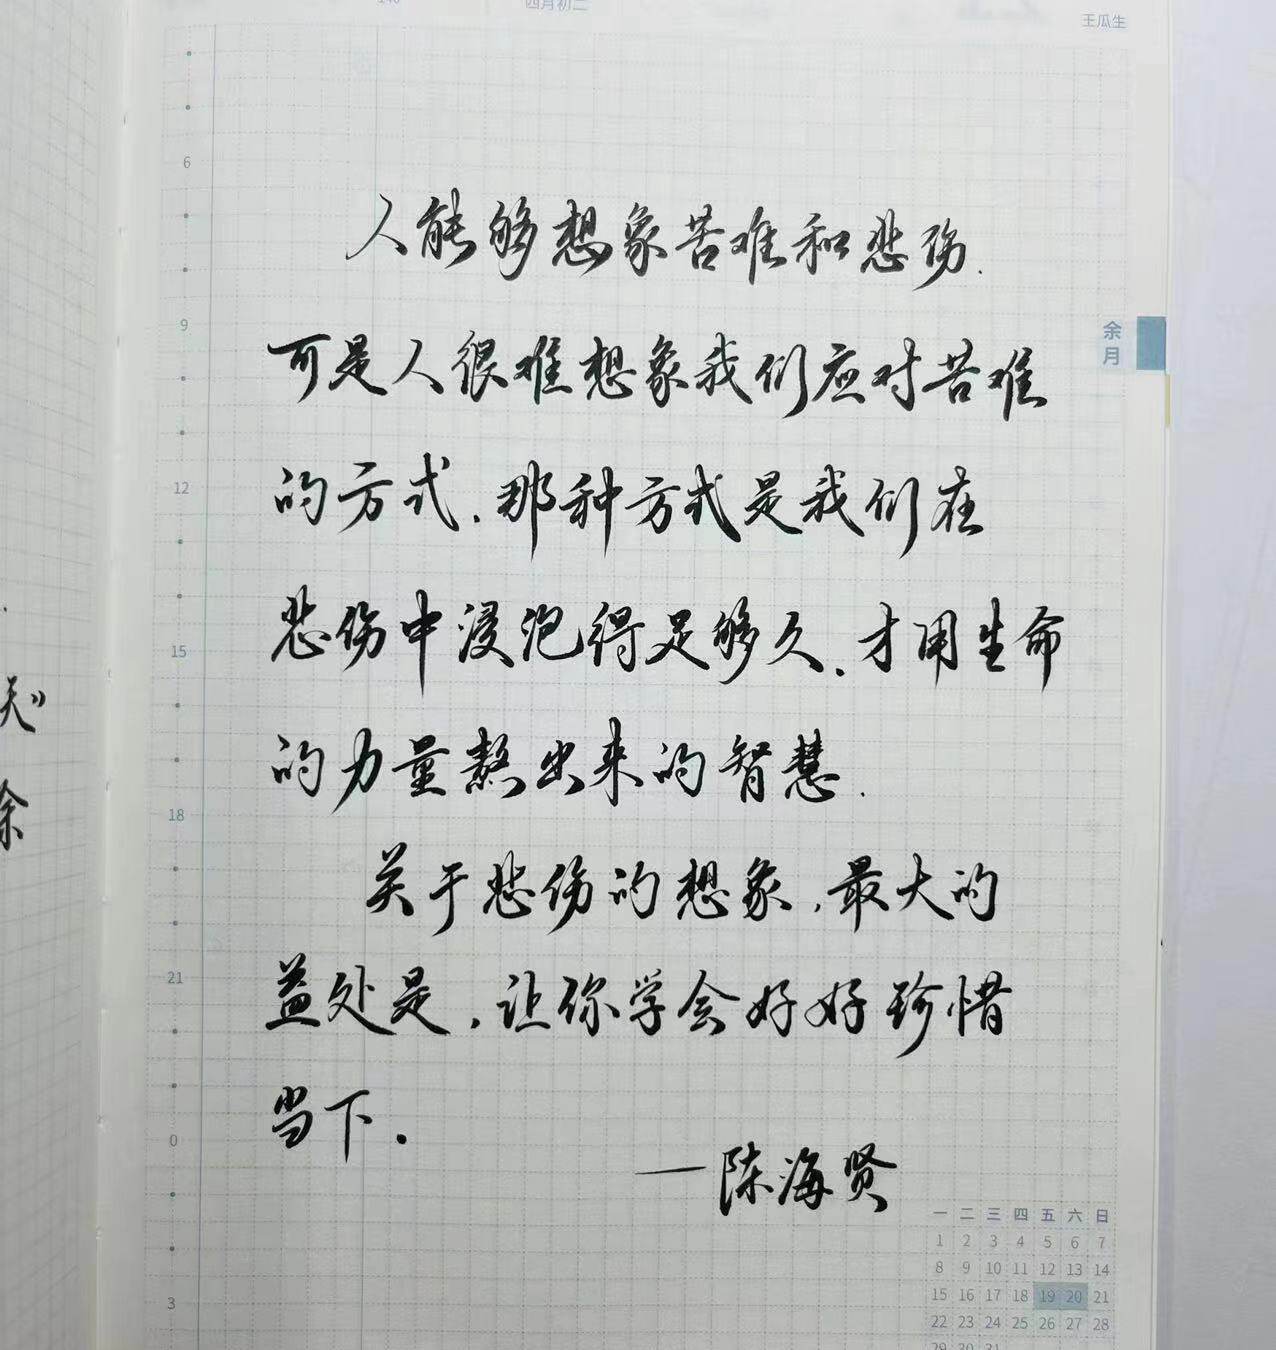 四月初二
王瓜生
6
人能够想象苦难和悲伤.
9
余月
可是人很难想象我们应对苦难
12
的方式.那种方式是我们在
15
悲伤中浸泡得足够久.才用生命
天》
的力量熬出来的智慧.
18
余
关于悲伤的想象,最大的
21
益处是,让你学会好好珍惜
0
当下.
—陈海贤
一 二 三 四 五 六 日
1 2 3 4 5 6 7
8 9 10 11 12 13 14
15 16 17 18 19 20 21
22 23 24 25 26 27 28
29 30 31
3